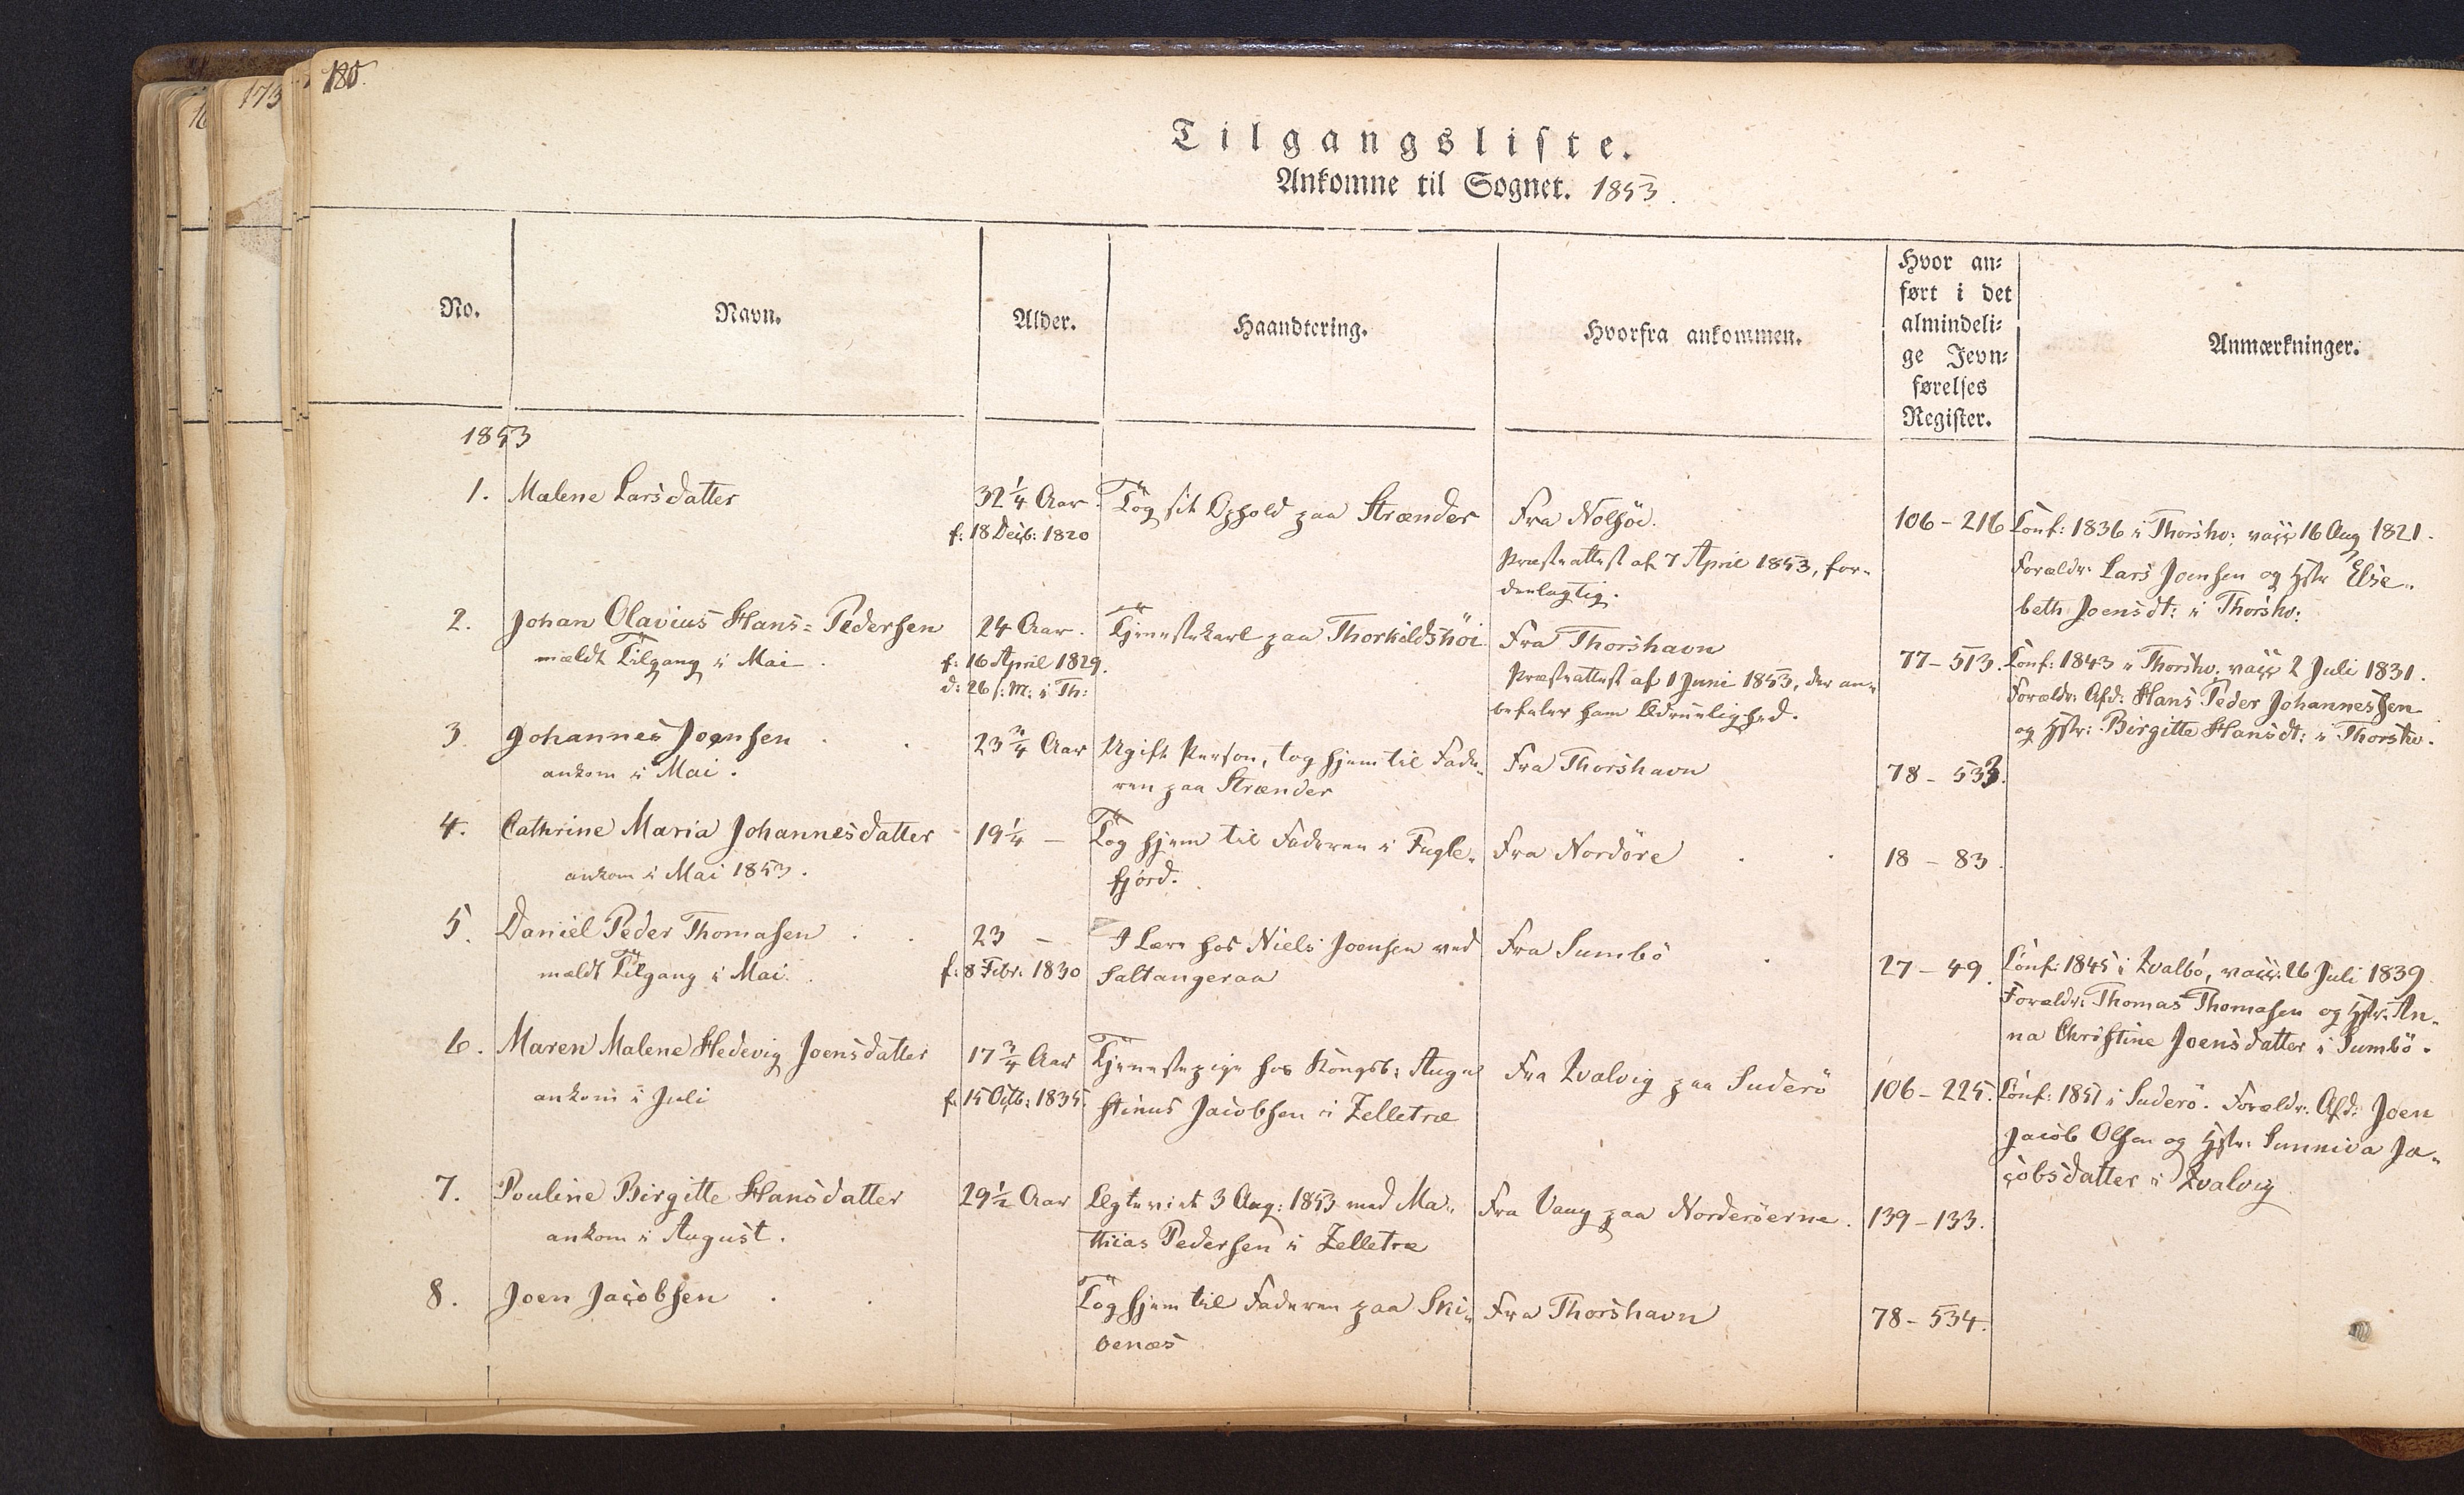 180.
173
Tilgangsliste.
Ankomne til Sognet. 1853.
No.
Navn.
Alder.
Haandtering.
Hvorfra ankommen.
Hvor an-
ført i det
almindeli-
ge Jevn-
førelses
Register.
Anmærkninger.
1853
1. Malene Larsdatter
32 1/4 Aar.
f: 18 Decb: 1820
Tog sit Ophold paa Strænder
Fra Nolsöe.
Præsteattest af 7 April 1853, for-
106 - 216
Conf: 1836 i Thorshv: vacc 16 Aug 1821.
Forældr: Lars Joensen og Hstr Else-
beth Joensdt: i Thorshv:
2. Johan Olavius Hans-Pedersen
mældt Tilgang i Mai.
24 Aar.
f: 16 April 1829.
d: 26 s: M: i Th:
Tjenestekarl paa Thorkildshöi
Fra Thorshavn
Præsteattest af 1 Juni 1853, der an-
befaler ham Ædruelighed.
77 - 513.
Conf: 1843 i Thorshv: vacc 2 Juli 1831.
Forældr: Afd: Hans Peder Johannessen
og Hstr: Birgitte Hansdt: i Thorshv.
3. Johannes Joensen
ankom i Mai.
23 3/4 Aar
Ugift Person, tog hjem til Fade-
ren paa Strænder
Fra Thorshavn
78 - 533.
4. Cathrine Maria Johannesdatter
ankom i Mai 1853.
19 1/4 -
Tog hjem til Faderen i Fugle-
fjord.
Fra Nordöre
18 - 83.
5. Daniel Peder Thomasen
mældt Tilgang i Mai.
23 -
f: 8 Febr: 1830
I Lære hos Niels Joensen ved
Saltangeraa
Fra Sumbö
27 - 49.
Conf: 1845 i Qvalbö, vacc: 26 Juli 1839.
Forældr: Thomas Thomasen og Hstr: An-
na Christine Joensdatter i Sumbö.
6. Maren Malene Hedevig Joensdatter
ankom i Juli
17 3/4 Aar
f: 15 Octb: 1835.
Tjenestepige hos Kongsb: Augu-
stinus Jacobsen i Zelletræ
Fra Qvalvig paa Suderö
106 - 225.
Conf: 1851 i Suderö. Forældr: Afd: Joen
Jacob Olsen og Hstr: Sunniva Ja-
cobsdatter i Qvalvig
7. Pouline Birgitte Hansdatter
ankom i August.
29 1/2 Aar
Ægteviet 3 Aug: 1853 med Ma-
thias Pedersen i Zelletræ
Fra Vaag paa Norderöerne.
139 - 133.
8. Joen Jacobsen
Tog hjem til Faderen paa Ski-
penæs
Fra Thorshavn
78 - 534.